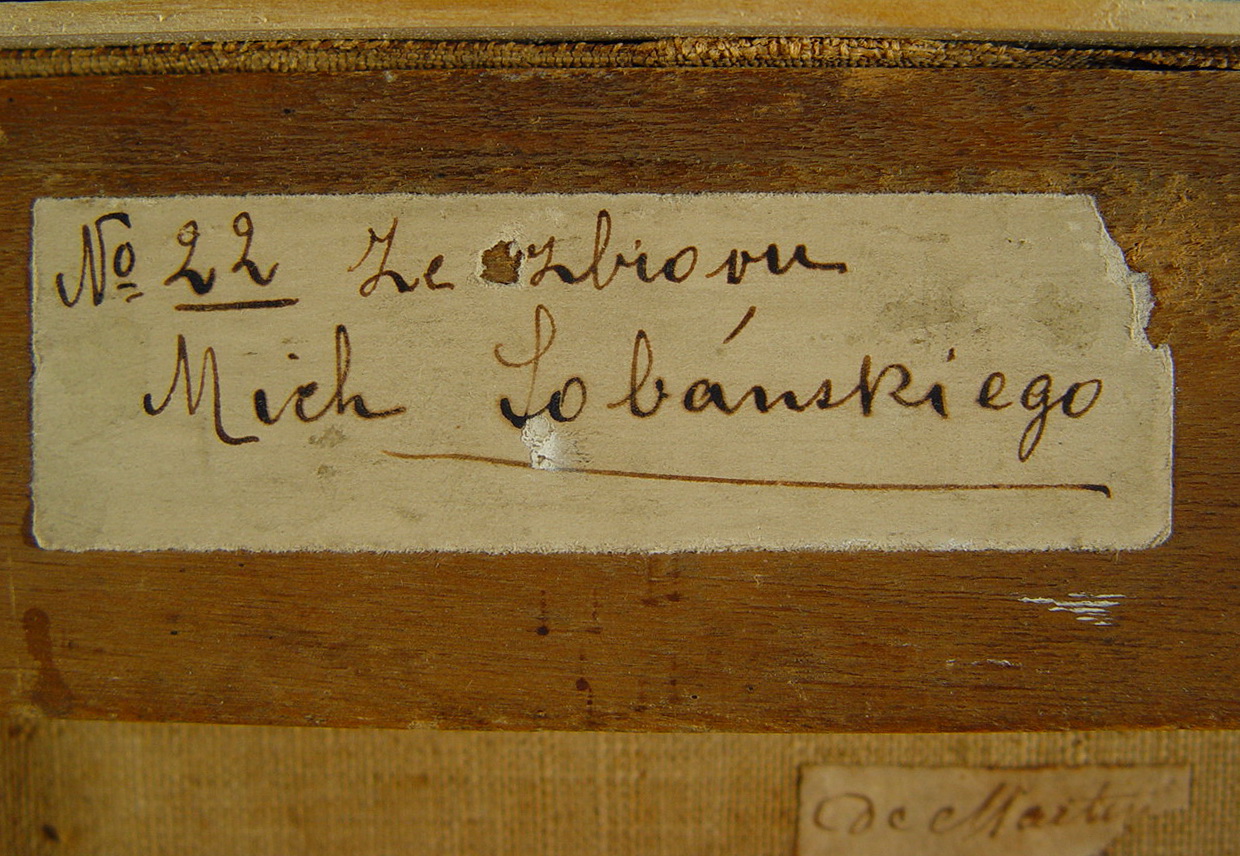 No 22 Ze zbioru
Mich Sobańskiego
de